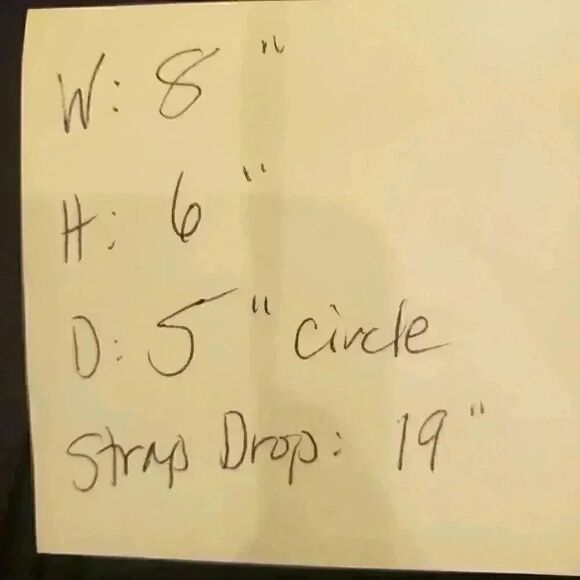 W: 8"
H: 6"
D: 5" circle
Strap Drop: 19"